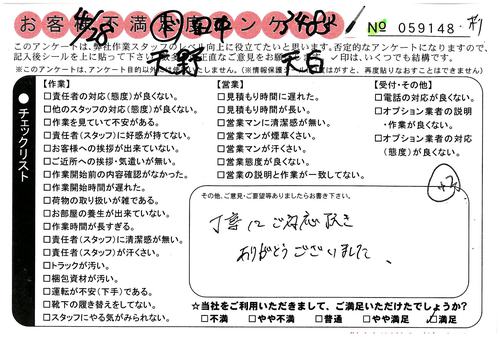 お客様不満足度アンケート
No 059148
このアンケートは、弊社作業スタッフのレベル向上に役立てたいと思います。否定的なアンケートになりますので、
記入後シールを上に貼って下さい。
正直なご意見をお願い
✓印は、いくつでも結構です。
※このアンケートは、アンケート目的以外に
いたしません。(※情報保護シール
はがすと、再度貼りなおすことはできません)
天野
天白
チェックリスト
【作業】
□責任者の対応(態度)が良くない。
□他のスタッフの対応(態度)が良くない。
□作業を見ていて不安がある。
□責任者(スタッフ)に好感が持てない。
□お客様への挨拶が出来ていない。
□ご近所への挨拶・気遣いが無い。
□作業開始前の内容確認がなかった。
□作業開始時間が遅れた。
□荷物の取り扱いが雑である。
□お部屋の養生が出来ていない。
□作業時間が長すぎる。
□責任者(スタッフ)に清潔感が無い。
□責任者(スタッフ)が汗くさい。
□トラックが汚い。
□梱包資材が汚い。
□運転が不安(下手)である。
□靴下の履き替えをしてない。
□スタッフにやる気がみられない。
【営業】
□見積もり時間に遅れた。
□見積もり時間が長い。
□営業マンに清潔感が無い。
□営業マンが煙草くさい。
□営業マンが汗くさい。
□営業態度が良くない。
□営業の説明と作業が一致してない。
【受付・その他】
□電話の対応が良くない。
□オプション業者の説明
・作業が良くない。
□オプション業者の対応
(態度)が良くない。
その他、ご意見・ご要望等ありましたらお書き下さい。
丁寧にご対応頂き
ありがとうございました。
☆当社をご利用いただきまして、ご満足いただけたでしょうか?
□不満 □やや不満 □普通 □やや満足 □満足